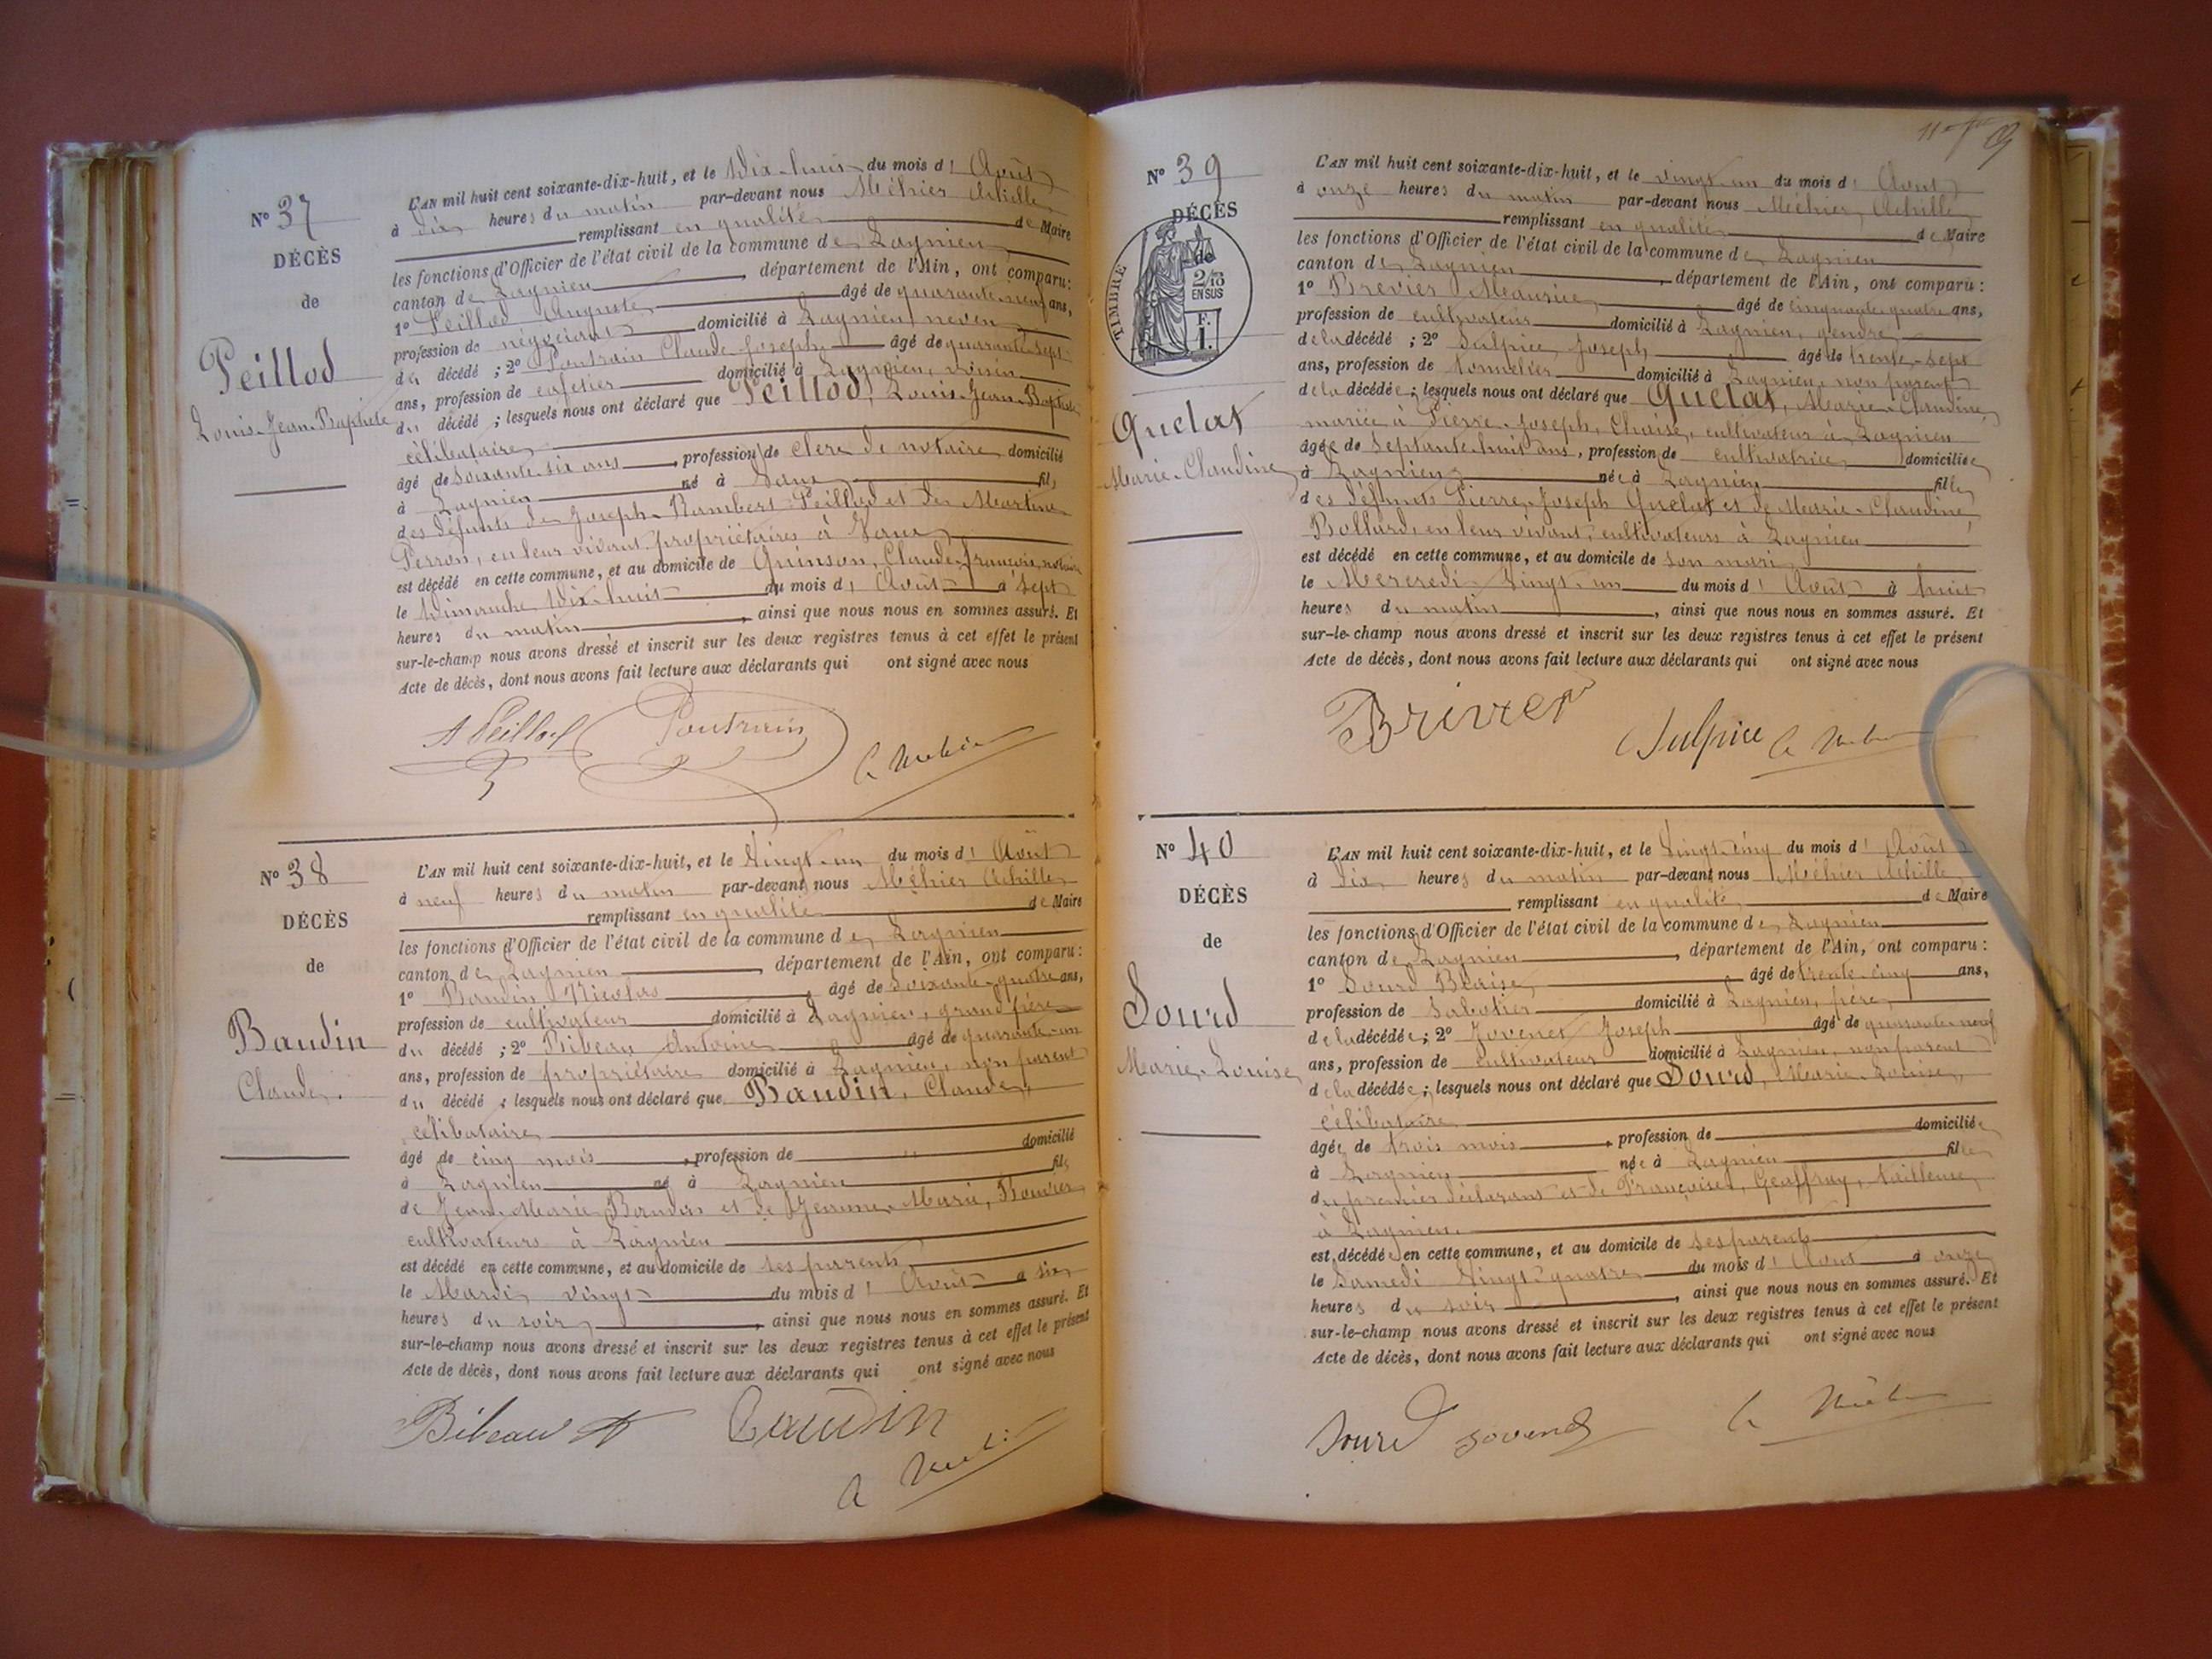 N° 37
DÉCÈS
de
Peillod
Louis-Jean-Baptiste
L'AN mil huit cent soixante-dix-huit, et le Dix-huit du mois d'Août
à dix heures du matin par-devant nous Méhier Achille
remplissant en qualité de Maire
les fonctions d'Officier de l'état civil de la commune de Lagnieu
canton de Lagnieu, département de l'Ain, ont comparu:
1° Peillod Auguste âgé de quarante-neuf ans,
profession de négociant domicilié à Lagnieu, neveu
du décédé ; 2° Poutrain Claude-Joseph âgé de quarante-sept
ans, profession de cafetier domicilié à Lagnieu, voisin
du décédé ; lesquels nous ont déclaré que Peillod, Louis-Jean-Baptiste
célibataire
âgé de soixante-six ans, profession de clerc de notaire domicilié
à Lagnieu né à Vaux fils
des défunts de Joseph-Rambert Peillod et de Martine
Perron, en leur vivant propriétaires à Vaux
est décédé en cette commune, et au domicile de Quinson, Claude-françois, notaire
le Dimanche Dix-huit du mois d'Août à sept
heures du matin, ainsi que nous nous en sommes assuré. Et
sur-le-champ nous avons dressé et inscrit sur les deux registres tenus à cet effet le présent
Acte de décès, dont nous avons fait lecture aux déclarants qui ont signé avec nous
A Peillod Poutrain
N° 38
DÉCÈS
de
Baudin
Claude.
L'AN mil huit cent soixante-dix-huit, et le Vingt-un du mois d'Août
à neuf heures du matin par-devant nous Méhier Achille
remplissant en qualité de Maire
les fonctions d'Officier de l'état civil de la commune de Lagnieu
canton de Lagnieu, département de l'Ain, ont comparu:
1° Baudin Nicolas âgé de soixante-quatre ans,
profession de cultivateur domicilié à Lagnieu, grand père
du décédé ; 2° Bibeau Antoine âgé de quarante-un
ans, profession de propriétaire domicilié à Lagnieu, non parent
du décédé ; lesquels nous ont déclaré que Baudin, Claude,
célibataire
âgé de cinq mois, profession de " domicilié
à Lagnieu né à Lagnieu fils
de Jean-Marie Baudin et de Jeanne-Marie,
cultivateurs à Lagnieu
est décédé en cette commune, et au domicile de ses parents
le Mardi vingt du mois d'Août à six
heures du soir, ainsi que nous nous en sommes assuré. Et
sur-le-champ nous avons dressé et inscrit sur les deux registres tenus à cet effet le présent
Acte de décès, dont nous avons fait lecture aux déclarants qui ont signé avec nous
Bibeau A Baudin
N° 39
DÉCÈS
de
TIMBRE
2/10
EN SUS
F.
1.
Quelat
Marie-Claudine
L'AN mil huit cent soixante-dix-huit, et le vingt-un du mois d'Août
à onze heures du matin par-devant nous Méhier, Achille
remplissant en qualité de Maire
les fonctions d'Officier de l'état civil de la commune de Lagnieu
canton de Lagnieu, département de l'Ain, ont comparu:
1° Brevier Maurice, âgé de cinquante-quatre ans,
profession de cultivateur domicilié à Lagnieu, gendre
de la décédé ; 2° Sulpice Joseph âgé de trente-sept
ans, profession de tonnelier domicilié à Lagnieu, non parent
de la décédée ; lesquels nous ont déclaré que Quelat, Marie-Claudine
mariée à Pierre-Joseph, Chaise, cultivateur à Lagnieu
âgée de septante-huit ans, profession de cultivatrice domiciliée
à Lagnieu née à Lagnieu fille
des défunts Pierre-Joseph Quelat et de Marie-Claudine
Bollard, en leur vivant, cultivateurs à Lagnieu
est décédé en cette commune, et au domicile de son mari
le Mercredi Vingt-un du mois d'Août à huit
heures du matin, ainsi que nous nous en sommes assuré. Et
sur-le-champ nous avons dressé et inscrit sur les deux registres tenus à cet effet le présent
Acte de décès, dont nous avons fait lecture aux déclarants qui ont signé avec nous
Brivier Sulpice
N° 40
DÉCÈS
de
Sourd
Marie-Louise
L'AN mil huit cent soixante-dix-huit, et le Vingt-cinq du mois d'Août
à dix heures du matin par-devant nous Méhier Achille
remplissant en qualité de Maire
les fonctions d'Officier de l'état civil de la commune de Lagnieu
canton de Lagnieu, département de l'Ain, ont comparu:
1° Sourd Blaise, âgé de trente-cinq ans,
profession de Sabotier domicilié à Lagnieu, père,
de la décédée ; 2° Jovenet Joseph âgé de quarante-neuf
ans, profession de cultivateur domicilié à Lagnieu, non parent
de la décédée ; lesquels nous ont déclaré que Sourd, Marie-Louise,
célibataire
âgée de trois mois, profession de domiciliée
à Lagnieu née à Lagnieu fille
du premier déclarant et de Françoise, Geoffray, tailleuse
à Lagnieu.
est décédée en cette commune, et au domicile de ses parents
le Samedi Vingt-quatre du mois d'Août à onze
heures du soir, ainsi que nous nous en sommes assuré. Et
sur-le-champ nous avons dressé et inscrit sur les deux registres tenus à cet effet le présent
Acte de décès, dont nous avons fait lecture aux déclarants qui ont signé avec nous
Sourd